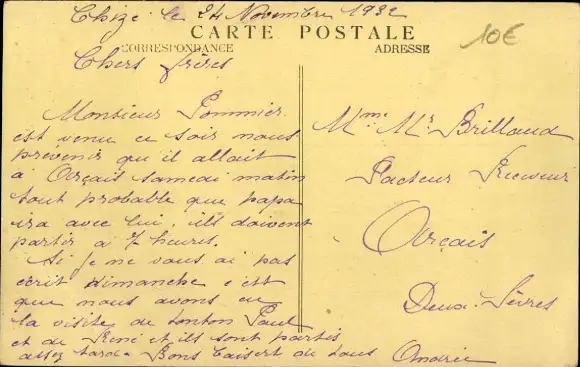 Chizé le 24 Novembre 1932
CARTE POSTALE
10€
CORRESPONDANCE
ADRESSE
Chers frères
Monsieur Pommier
est venu ce soir nous
prévenir qu'il allait
à Arçais samedi matin
tout probable que papa
ira avec lui, ils doivent
partir à 7 heures.
Si je ne vous ai pas
écrit dimanche c'est
que nous avons eu
la visite de tonton Paul
et de René et ils sont partis
assez tard. Bons baisers de tous Andrée
Mme Mr Brillaud
Facteur Receveur
Arçais
Deux-Sèvres